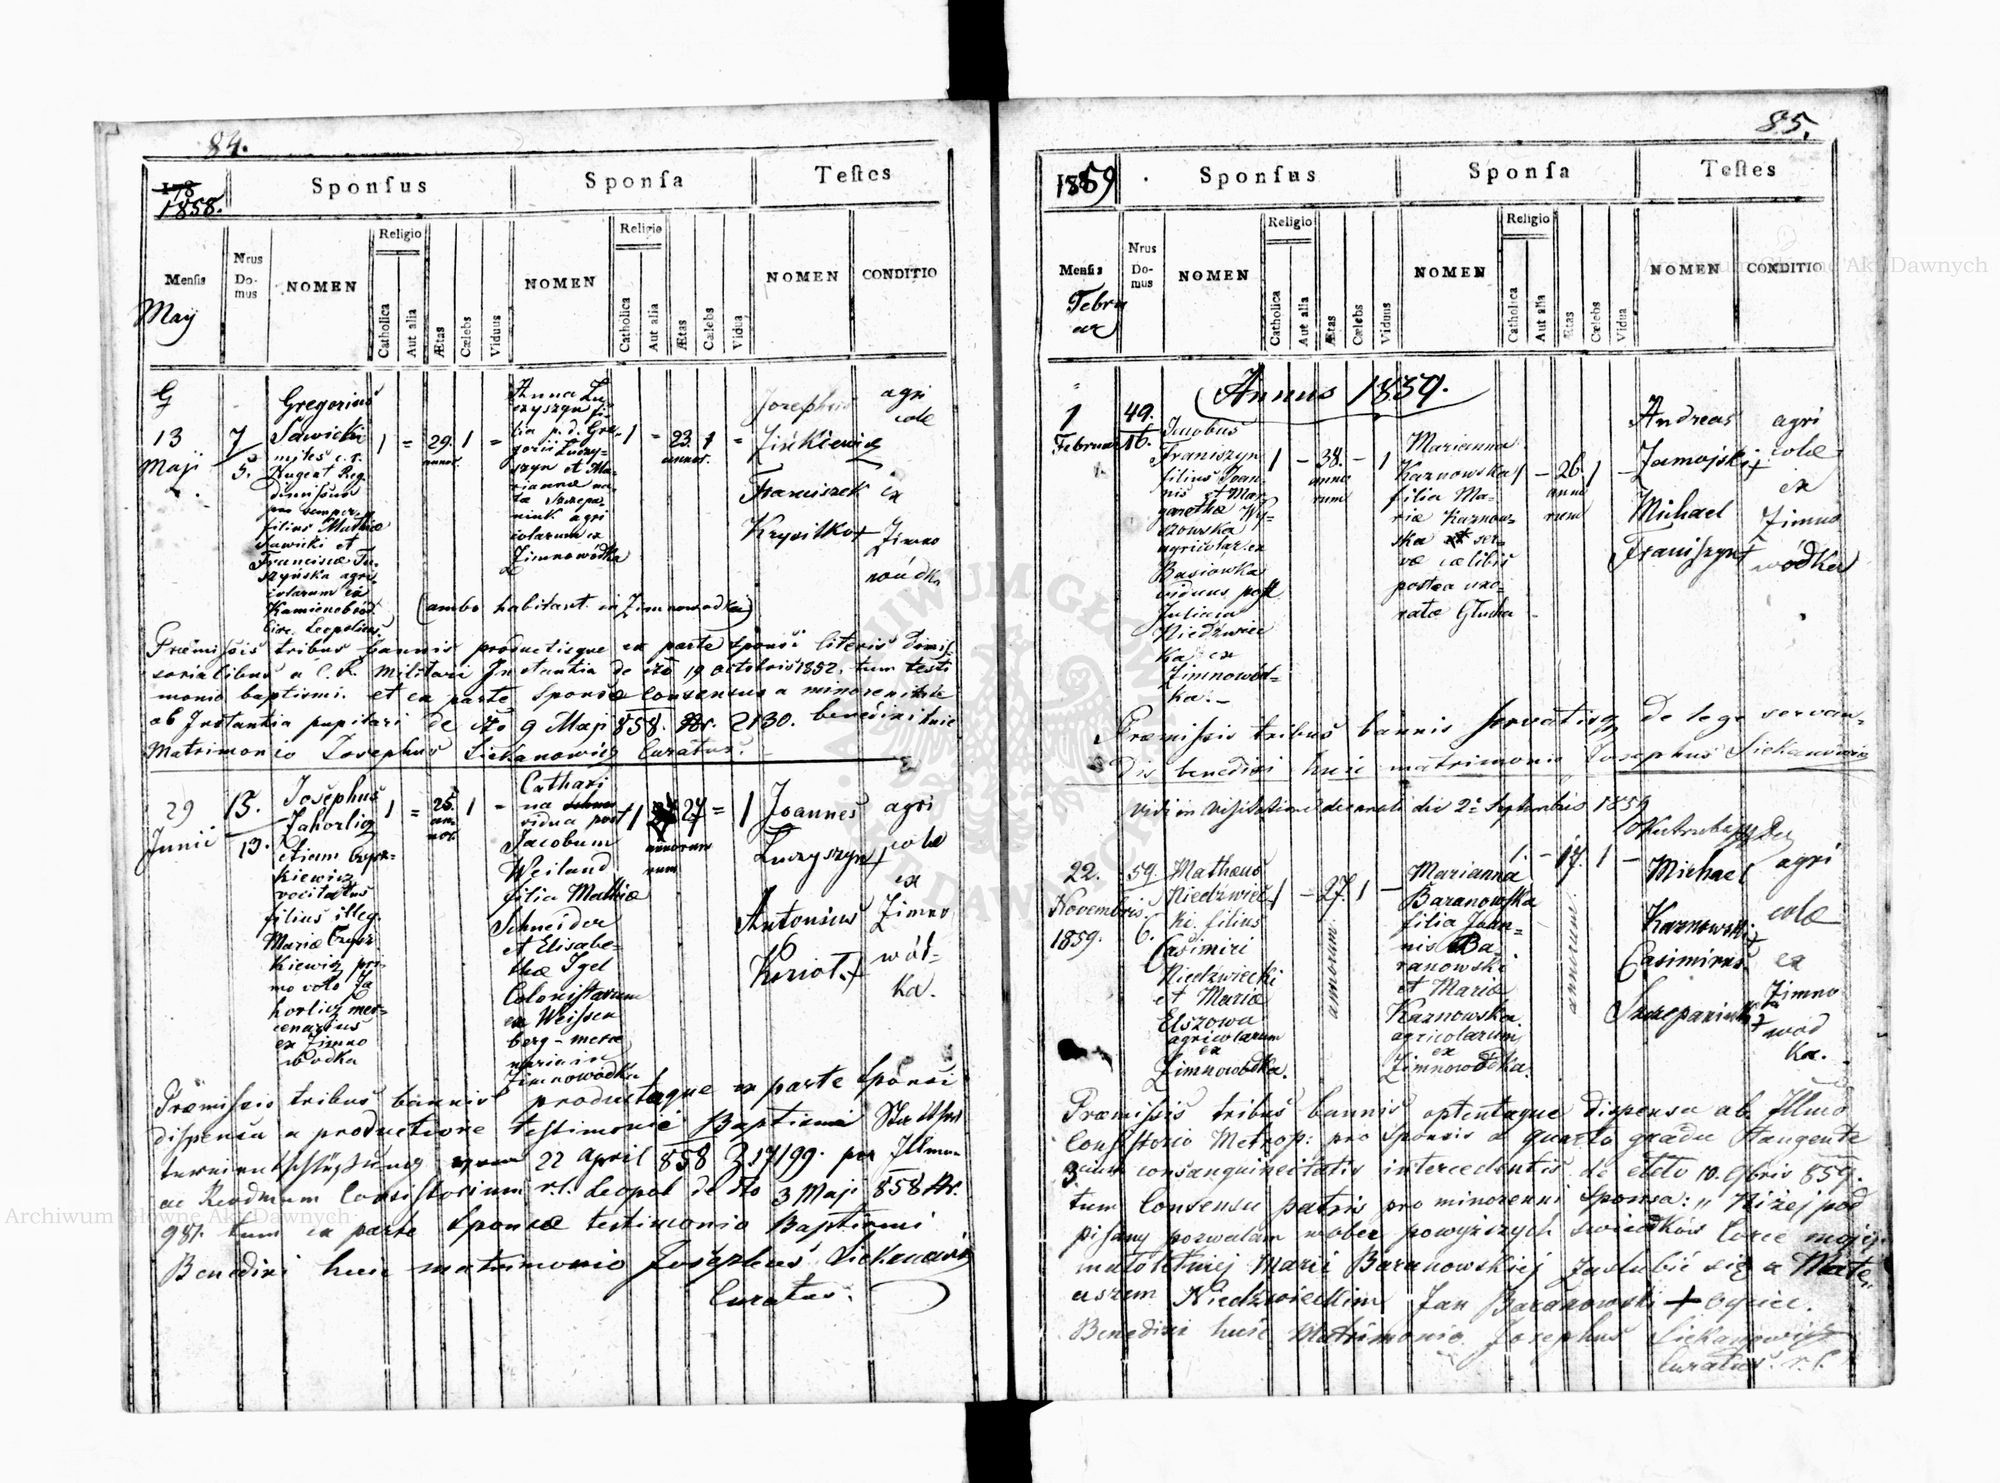 84.
178
1858.
Sponsus
Sponsa
Testes
Mensis
Nrus Domus
NOMEN
Religio
Catholica
Aut alia
Ætas
Cælebs
Viduus
NOMEN
Religio
Catholica
Aut alia
Ætas
Cælebs
Vidua
NOMEN
CONDITIO
Maij
13
Maji
7
5.
Gregorius
Sawicki
miles c. r.
Nugent Reg.
dimissus
pro semper,
filius Mathiæ
Sawicki et
Franciscæ Tu-
szyńska agri
colarum ex
Kamienobrod
Circ. Leopolien.
1 = 29. 1 =
annor.
Anna Lu-
czyszyn fi-
lia p. d. Gre-
gorii Luczy-
szyn et Ma-
riannæ na-
tæ Szczepa-
niuk agri
colarum ex
Zimnowódka
1 = 23. 1 =
annor.
Josephus
Zińkiewicz
Franciszek
+
agri
colæ
ex
Zimno
wódka
(ambo habitant. in Zimnowodka)
Præmissis tribus bannis productisque ex parte sponsi literis dimis-
sorialibus a C. R. Militari Instantia de dto 19 octobris 1852. tum testi
monio baptismi. et ex parte Sponsæ Consensus a minorenitate
ab Instantia pupilari de dto 9 Maji 858. Nr. 2130. benedixi huic
Matrimonio Josephus Siekanowicz Curatus.
29
Junii
15.
13.
Josephus
Zahorlicz
etiam
kiewicz
vocitatus
filius illeg.
Mariæ
kiewicz pri-
mo voto Za
horlicz mer-
cenarius
ex Zimno
wodka
1 = 25. 1 =
an
nor.
Cathari
na
vidua post
Jacobum
Weiland
filia Mathiæ
Schneider
et Elisabe-
thæ Igel
Colonistarum
ex Weissen
berg - merce
naria in
Zimnowodka
1 27 = 1
annorum
Joannes
Luczyszyn +
Antonius
Kiriot +
agri
colæ
ex
Zimno
wód-
ka.
Præmissis tribus bannis productaque ex parte Sponsi
dispensa a productione testimonii Baptismi
22 April 858 Z 17199. per Illmum
ac Revdmum Consistorium r. l. Leopol de dto 3 Maji 858 Nr.
987. tum ex parte Sponsæ testimonio Baptismi
Benedixi huic matrimonio Josephus Siekanowicz
Curatus.
85.
1859
Sponsus
Sponsa
Testes
Mensis
Nrus Domus
NOMEN
Religio
Catholica
Aut alia
Ætas
Cælebs
Viduus
NOMEN
Religio
Catholica
Aut alia
Ætas
Cælebs
Vidua
NOMEN
CONDITIO
Febru
ar
Annus 1859.
1
Februar
49.
16.
Jacobus
Franiszyn
filius Joan-
nis et Mar-
garetha Wy-
szowska
agricolar. ex
Basiowka
viduus post
Juliana
Niedźwiec
ka ex
Zimnowód-
ka. -
1 - 38. - 1
anno
rum
Marianna
Kaznowska
filia Ma-
riæ Kaznow-
ska ser-
væ cælibis
postea uxo-
ratæ Glucha
1 - 26. 1 -
anno
rum
Andreas
Zamojski +
Michael
Franiszyn +
agri
colæ
ex
Zimno
wódka
Præmissis tribus bannis servatisq de lege servan-
dis benedixi huic matrimonio Josephus Siekanowicz
Vidi in Visitatione decanali die 2 Septembris 1859
22.
Novembris
1859.
59.
6.
Mathæus
Niedzwiec-
ki filius
Casimiri
Niedzwiecki
et Mariæ
Elszowa
agricolarum
ex
Zimnowodka.
1 - 27. 1 -
annorum
Marianna
Baranowska
filia Joan-
nis Ba-
ranowski
et Mariæ
Kaznowska
agricolarum
ex
Zimnowodka.
1 - 17. 1 -
annorum
Michael
Kaznowski +
Casimirus
Szczepaniuk +
agri
colæ
ex
Zimno
wód
ka.
Præmissis tribus bannis optentaque dispensa ab Illmo
Consistorio Metrop: pro Sponsis a quarto gradu tangente
3. consanguineitatis intercedentis de dto 10. 9bris 859.
tum Consensu patris pro minorenni Sponsa: „ Niżej pod
pisany pozwalam wober powyrszych swiadków Corce mojej
małoletniej Marii Baranowskiej zaslubić się z Mate-
uszem Niedzwieckim Jan Baranowski + ojciec.
Benedixi huic Matrimonio Josephus Siekanowicz
Curatus. r. l.
Archiwum Główne Akt Dawnych
Archiwum Główne Akt Dawnych
ARCHIWUM GŁÓWNE AKT DAWNYCH